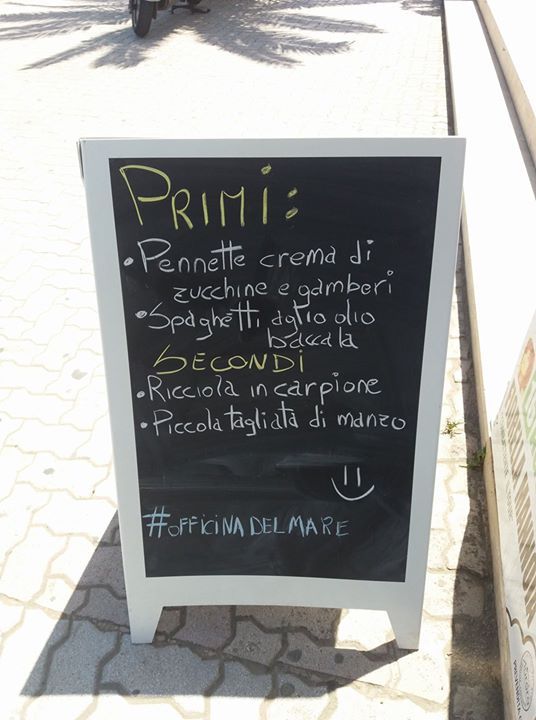 PRIMI:
• Pennette crema di
zucchine e gamberi
• Spaghetti aglio olio
baccala
SECONDI
• Ricciola in carpione
• Piccola tagliata di manzo
#OFFICINADELMARE